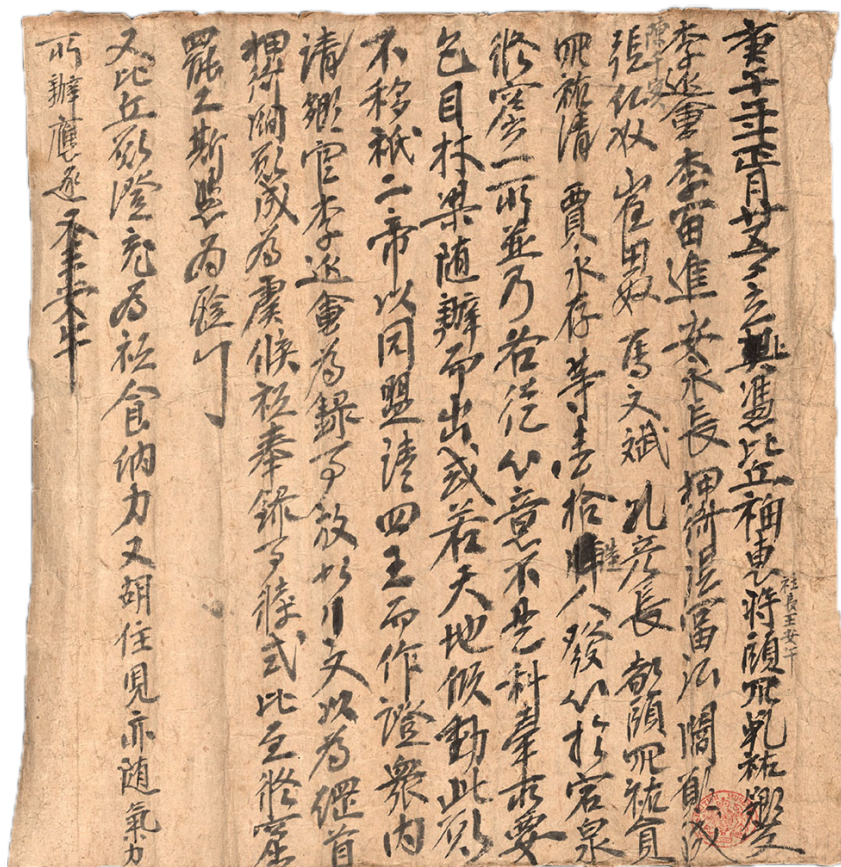 庚午年正月廿五日立憑比丘福惠將頭羅乾祐鄉官
社長王安午
李延會李富進安永長押衙張富弘閻願成
陳千定
張佛奴崔田奴馬文斌孔彦長都頭羅祐員
羅祐清賈永存等壹拾陸人發心於宕泉
修窟一所並乃各從心意不是科牽所要
色目材梁隨辦而出或若天地傾動此願
不移祇二帝以同盟請四王而作證衆内
請鄉官李延會為錄事放此行文以為綱首
押衙閻願成為虞候祗奉錄事條式比至修窟
罷日斯憑為驗
又比丘願澄充為祗食納力又胡住兒亦随氣力
所辦應逐 安午